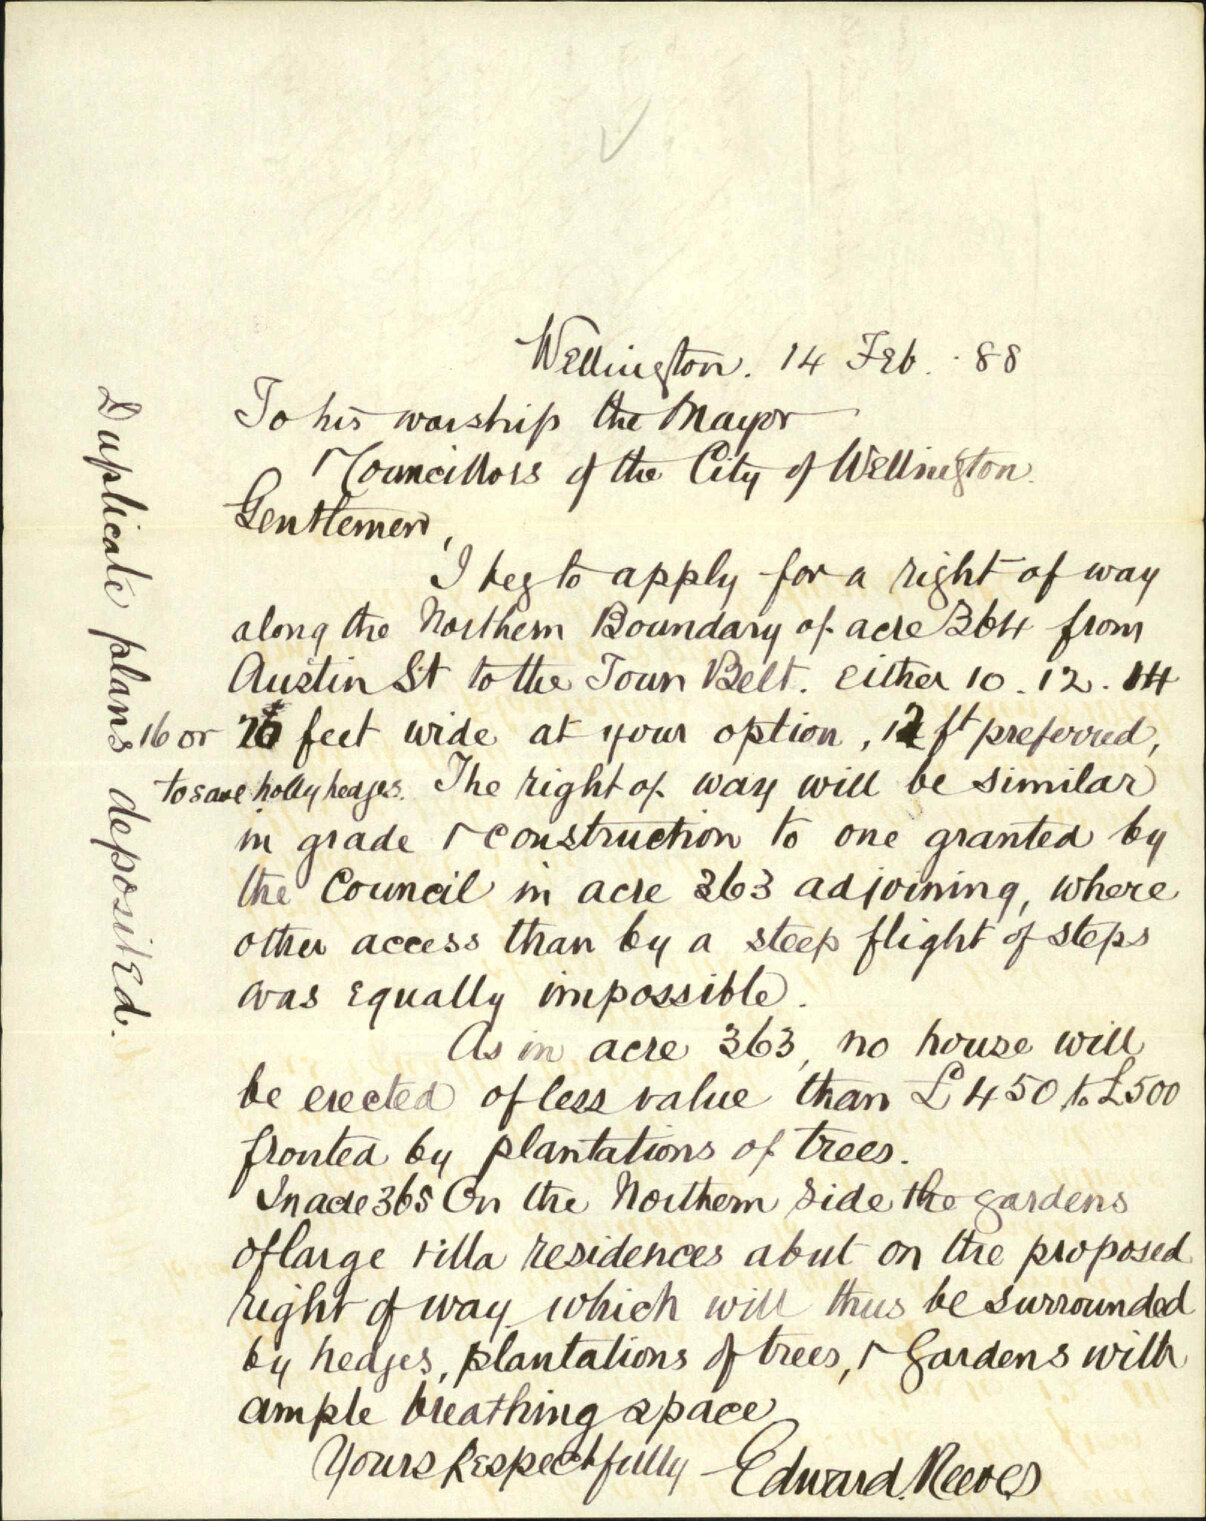 Wellington. 14 Feb. 88
To his worship the Mayor
& Councillors of the City of Wellington.
Gentlemen,
I beg to apply for a right of way
along the Northern Boundary of acre 364 from
Austin St to the Town Belt. Either 10. 12. 14
16 or feet wide at your option, 12 ft preferred,
to save holly hedges. The right of way will be similar
in grade & construction to one granted by
the Council in acre 363 adjoining, where
other access than by a steep flight of steps
was equally impossible.
As in acre 363, no house will
be erected of less value than £450 to £500
fronted by plantations of trees.
In acre 365 On the Northern side the gardens
of large villa residences abut on the proposed
right of way which will thus be surrounded
by hedges, plantations of trees, & Gardens with
ample breathing space
Yours Respectfully Edward Reeves
Duplicate plans deposited.